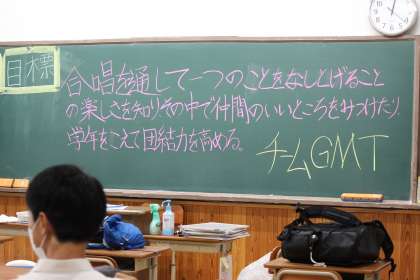 目標
合唱を通して一つのことをなしとげること
の楽しさを知り、その中で仲間のいいところをみつけたり、
学年をこえて団結力を高める。
チームGMT